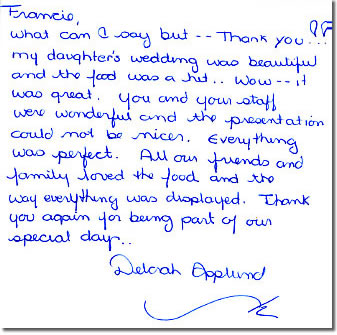 Francis,
what can I say but -- Thank you...!!
my daughter's wedding was beautiful
and the food was a hit.. Wow -- it
was great. You and your staff
were wonderful and the presentation
could not be nicer. Everything
was perfect. All our friends and
family loved the food and the
way everything was displayed. Thank
you again for being part of our
special day..
Deborah